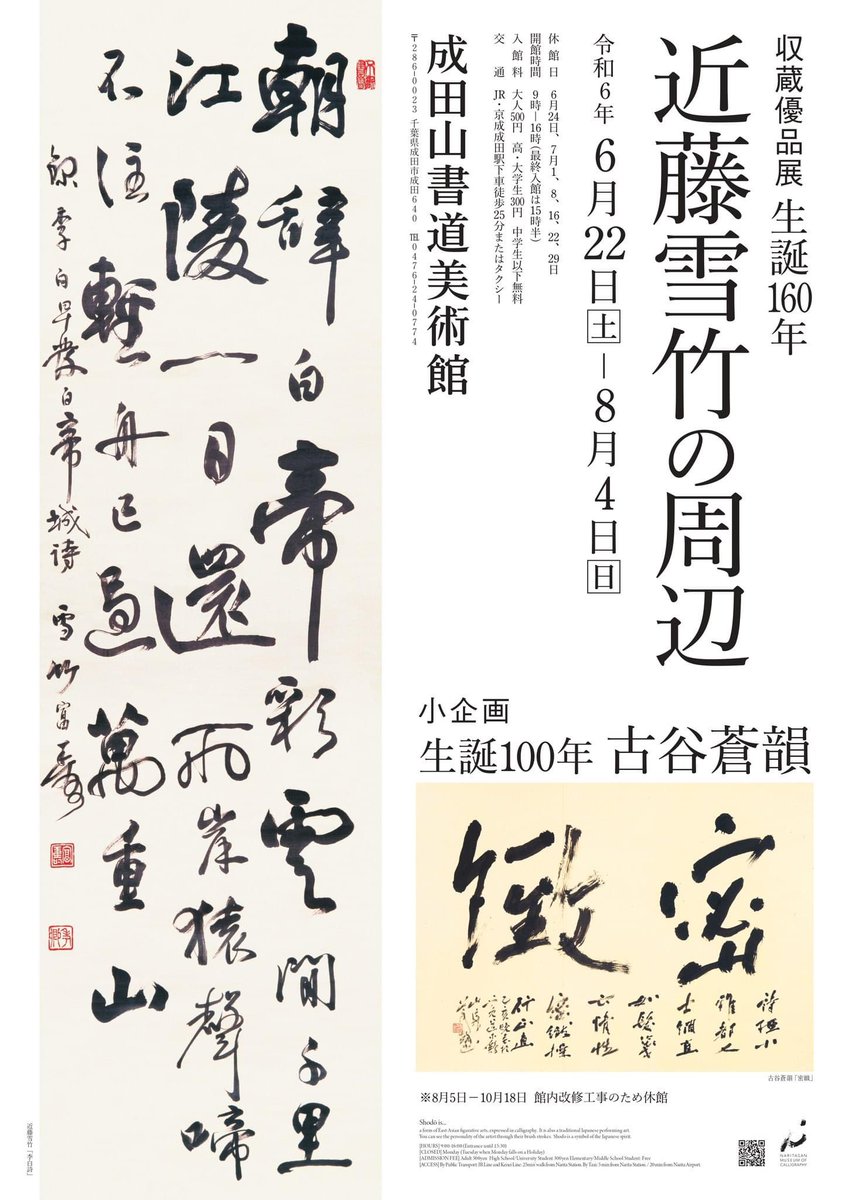 収蔵優品展 生誕160年
近藤雪竹の周辺
令和6年 6月22日土―8月4日日
休館日 6月24日、7月1、8、16、22、29日
開館時間 9時―16時(最終入館は15時半)
入館料 大人500円 高・大学生300円 中学生以下無料
交通 JR・京成成田駅下車徒歩25分またはタクシー
成田山書道美術館
〒286-0023 千葉県成田市成田640 ℡0476-24-0774
朝辞白帝彩雲間千里
江陵一日還兩岸猿聲啼
不住輕舟已過萬重山
録李白早發白帝城詩 雪竹富壽
近藤雪竹「李白詩」
小企画
生誕100年 古谷蒼韻
密緻
古谷蒼韻「密緻」
※8月5日－10月18日 館内改修工事のため休館
Shodō is...
a form of East Asian figurative arts, expressed in calligraphy. It is also a traditional Japanese performing art.
You can see the personality of the artist through their brush strokes. Shodo is a symbol of the Japanese spirit.
[HOURS] 9:00-16:00 (Entrance until 15:30)
[CLOSED] Monday (Tuesday when Monday falls on a Holiday)
[ADMISSION FEE] Adult 500yen High School/University Student 300yen Elementary/Middle School Student: Free
[ACCESS] By Public Transport: JR Line and Keisei Line: 25min' walk from Narita Station. By Taxi: 5 min from Narita Station. / 20min from Narita Airport.
NARITASAN
MUSEUM OF
CALLIGRAPHY